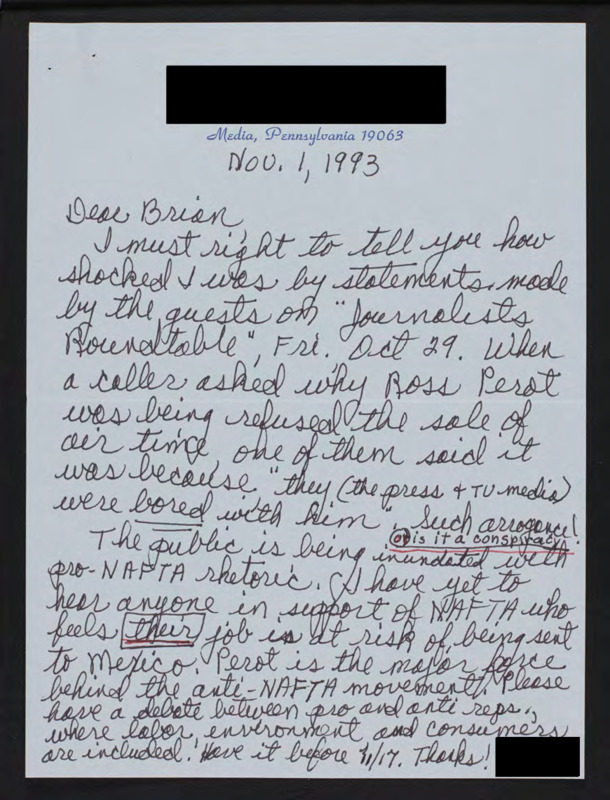 Media, Pennsylvania 19063
Nov. 1, 1993
Dear Brian,
I must right to tell you how
shocked I was by statements made
by the guests on "Journalists
Roundtable", Fri. Oct 29. When
a caller asked why Ross Perot
was being refused the sale of
air time, one of them said it
was because "they (the press & TV media)
were bored with him". Such arrogance!
or is it a conspiracy
The public is being inundated with
pro-NAFTA rhetoric. I have yet to
hear anyone in support of NAFTA who
feels their job is at risk of being sent
to Mexico. Perot is the major force
behind the anti-NAFTA movement. Please
have a debate between pro and anti reps.,
where labor, environment and consumers
are included. Have it before 11/17. Thanks!